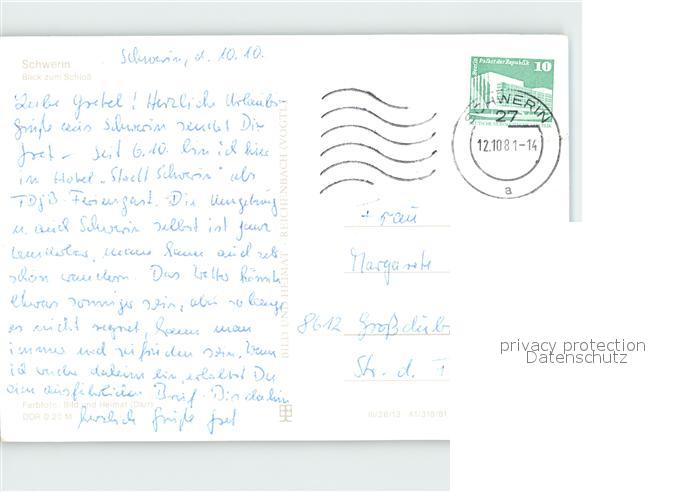 Schwerin
Blick zum Schloß
Schwerin, d. 10.10.
Liebe Gretel! Herzliche Urlaubs-
grüße aus Schwerin sendet Dir
Gret – Seit 6.10. bin ich hier
im Hotel „Stadt Schwerin" als
Feriengast. Die Umgebung
u. auch Schwerin selbst ist ganz
wunderbar, man kann auch sehr
schön wandern. Das Wetter könnte
etwas sonniger sein, aber solange
es nicht regnet, kann man
immer noch zufrieden sein. Wenn
ich wieder daheim bin, erhältst Du
einen ausführlichen Brief. Bis dahin
herzlich grüßt Gret
Farbfoto: Bild und Heimat (Darr)
DDR 0,20 M
BILD UND HEIMAT REICHENBACH (VOGTL)
Palast der Republik
10
SCHWERIN
27
12.10.81-14
a
Frau
Margarete
8612 Großdub
Str. d.
III/26/13 A1/318/81
privacy protection
Datenschutz